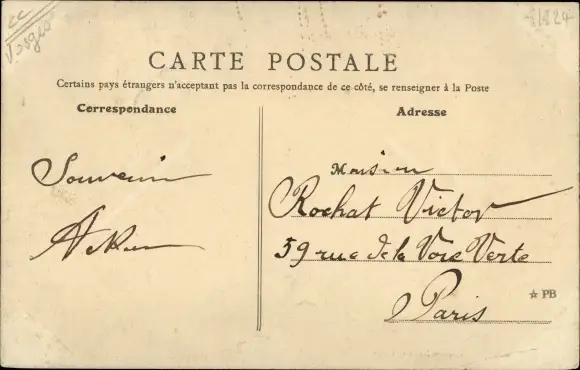 Vosges
CARTE POSTALE
Certains pays étrangers n'acceptant pas la correspondance de ce côté, se renseigner à la Poste
Correspondance
Adresse
Souvenir
Monsieur
Rochat Victor
59 rue de la Voie Verte
Paris
☆ PB